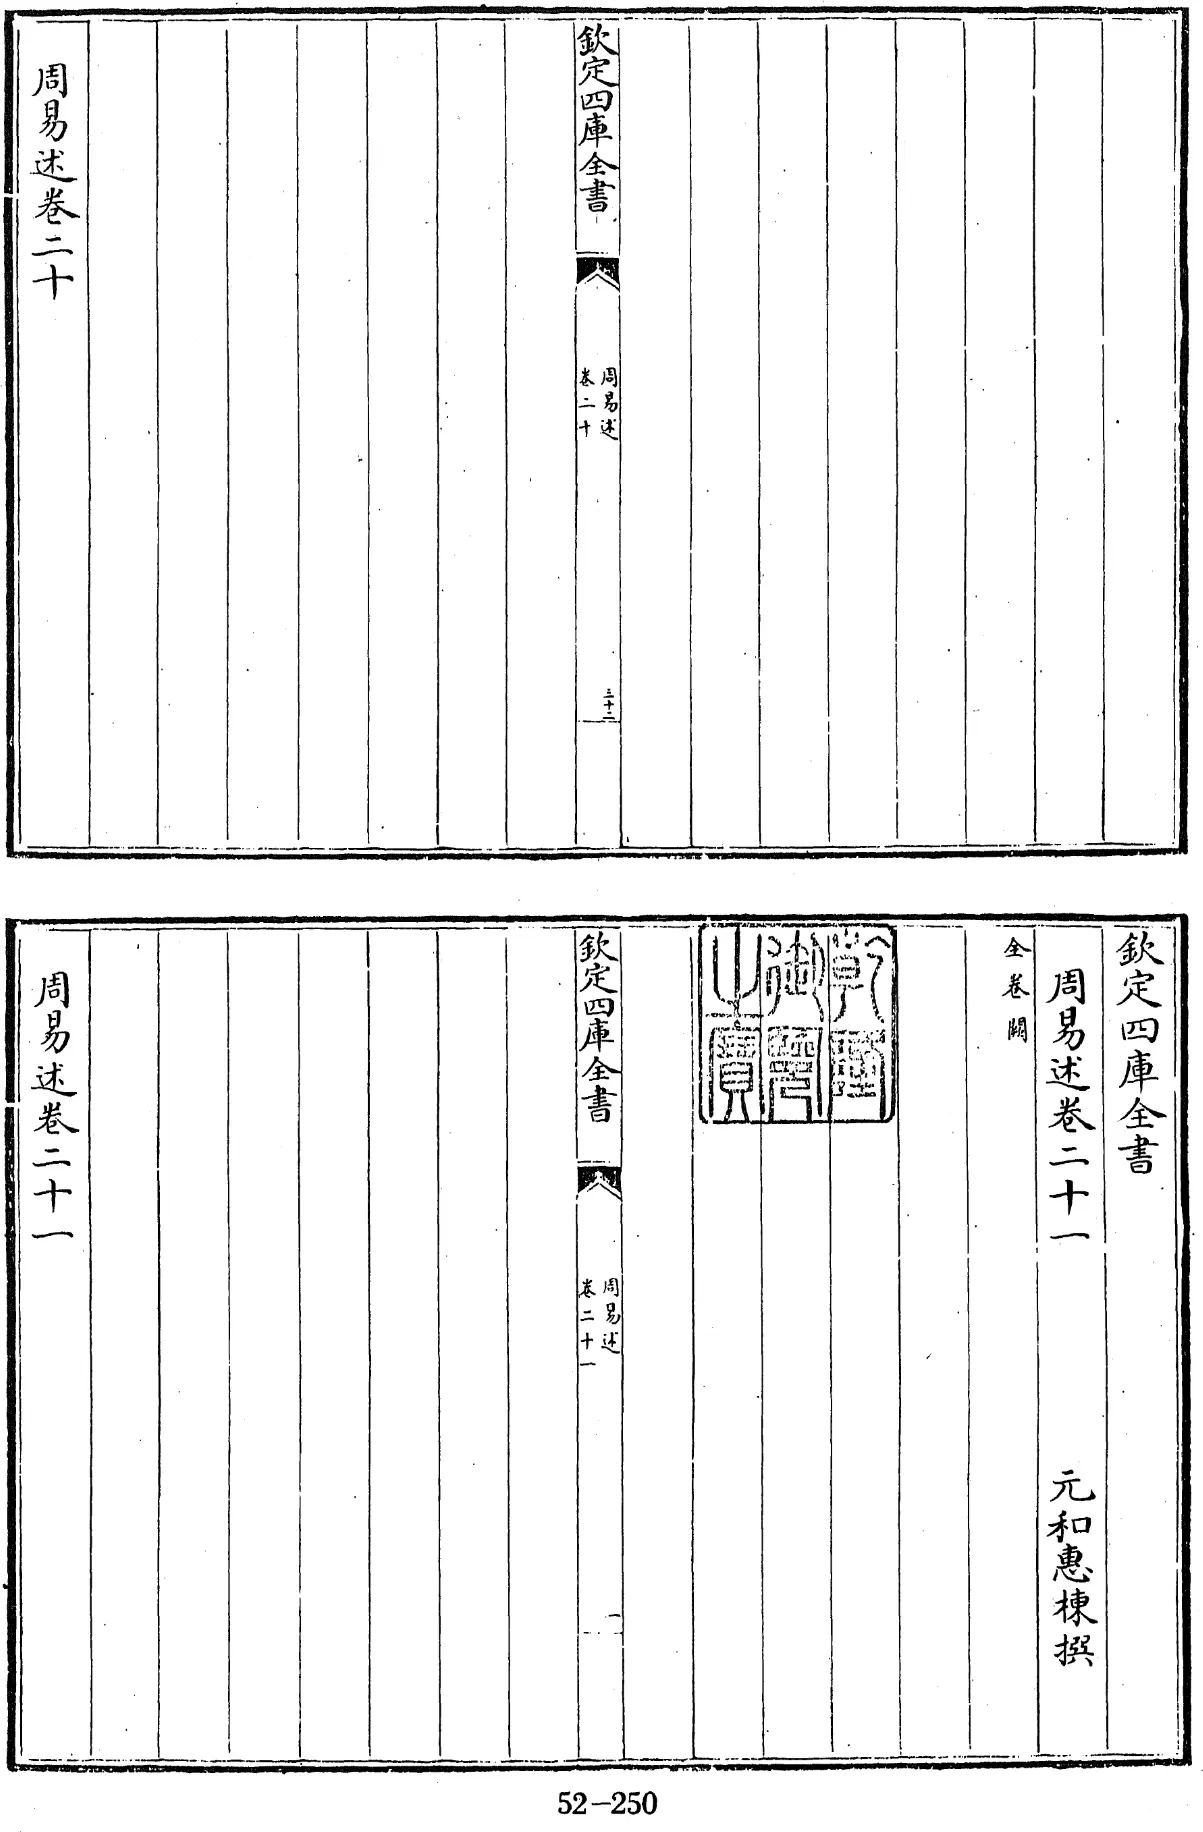 欽定四庫全書
周易述
卷二十
三十二
周易述卷二十
欽定四庫全書
周易述卷二十一
元和惠棟撰
全卷闕
乾隆
御覽
之寶
欽定四庫全書
周易述
卷二十一
一
周易述卷二十一
52-250